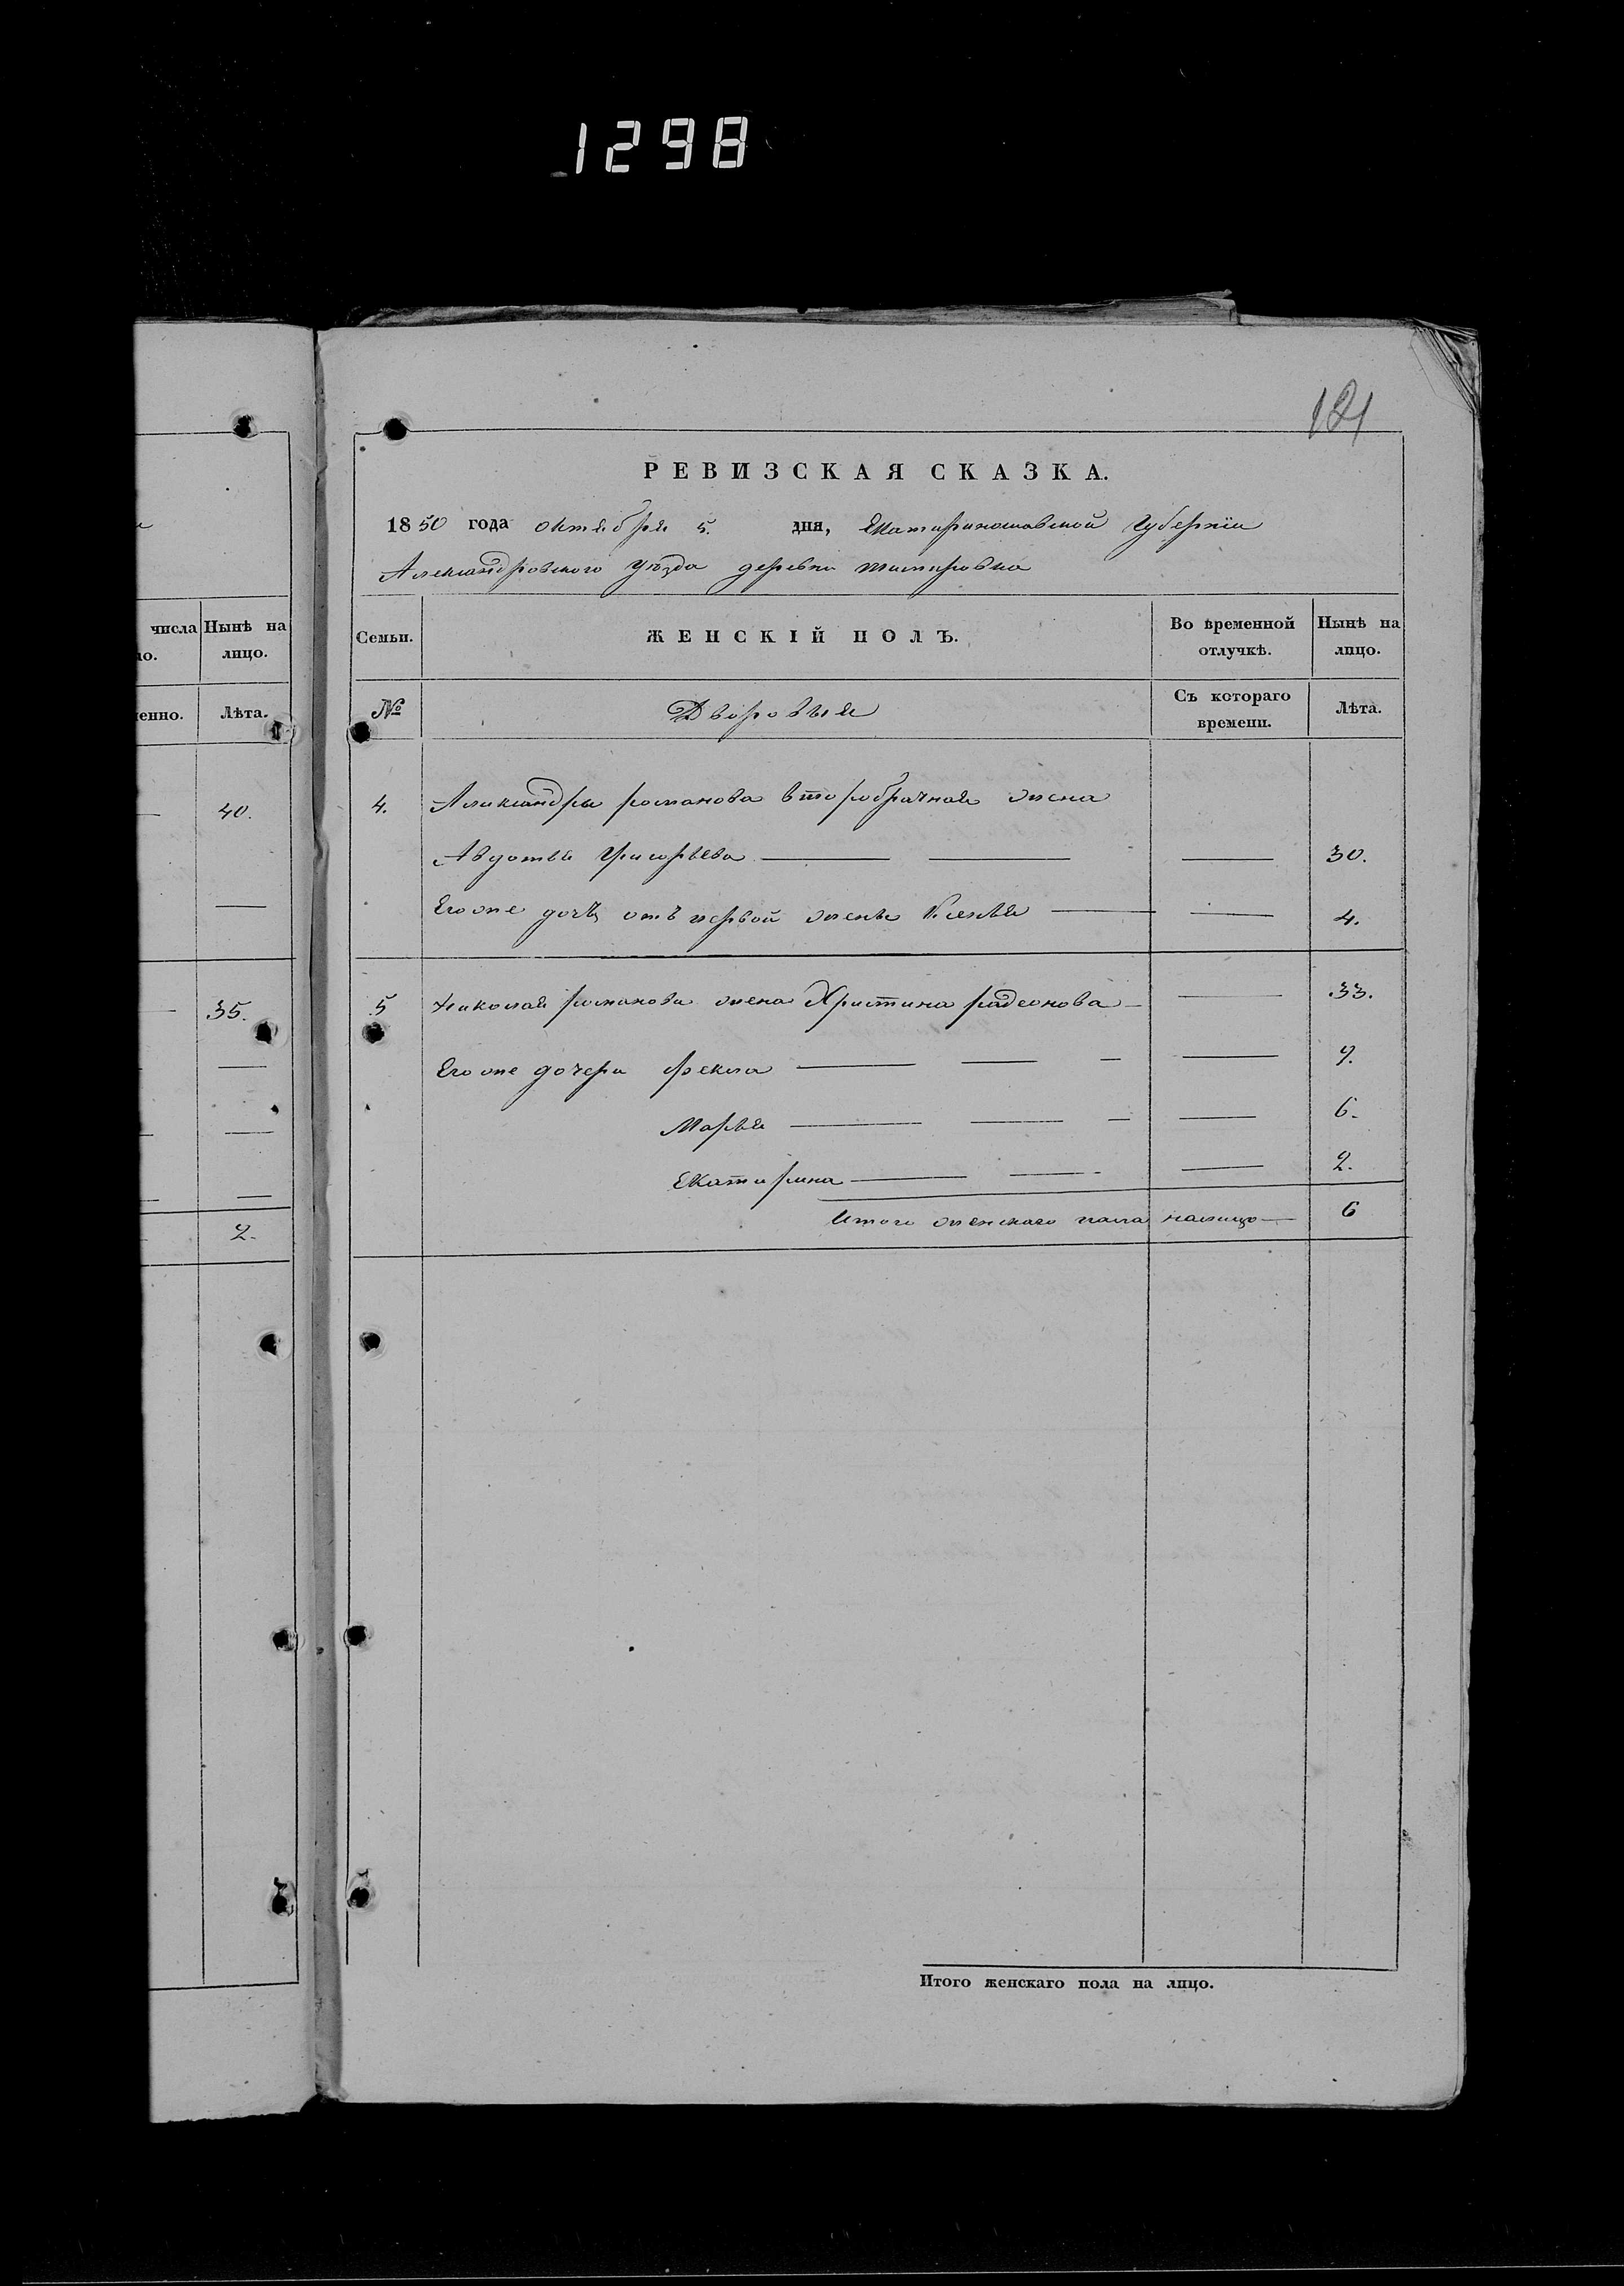 1298
121
РЕВИЗСКАЯ СКАЗКА.
1850 года октября 5. дня, Екатиринославской Губернiи
Александровского уѣзда деревни
числа Нынѣ на
ло. лицо.
енно. Лѣта.
40.
35.
2.
Семьи. ЖЕНСКІЙ ПОЛЪ. Во временной отлучкѣ. Нынѣ на лицо.
№ Дворовыя Съ котораго времени. Лѣта.
4. Александры романова второбрачная жена
Авдотья Григорьева 30.
Его же дочь отъ первой жены 4.
5 Николая романова жена Христина радеонова 33.
Его же дочери фекла 9.
Марья 6.
Екатирина 2.
Итого женскаго пола налицо 6
Итого женскаго пола на лицо.